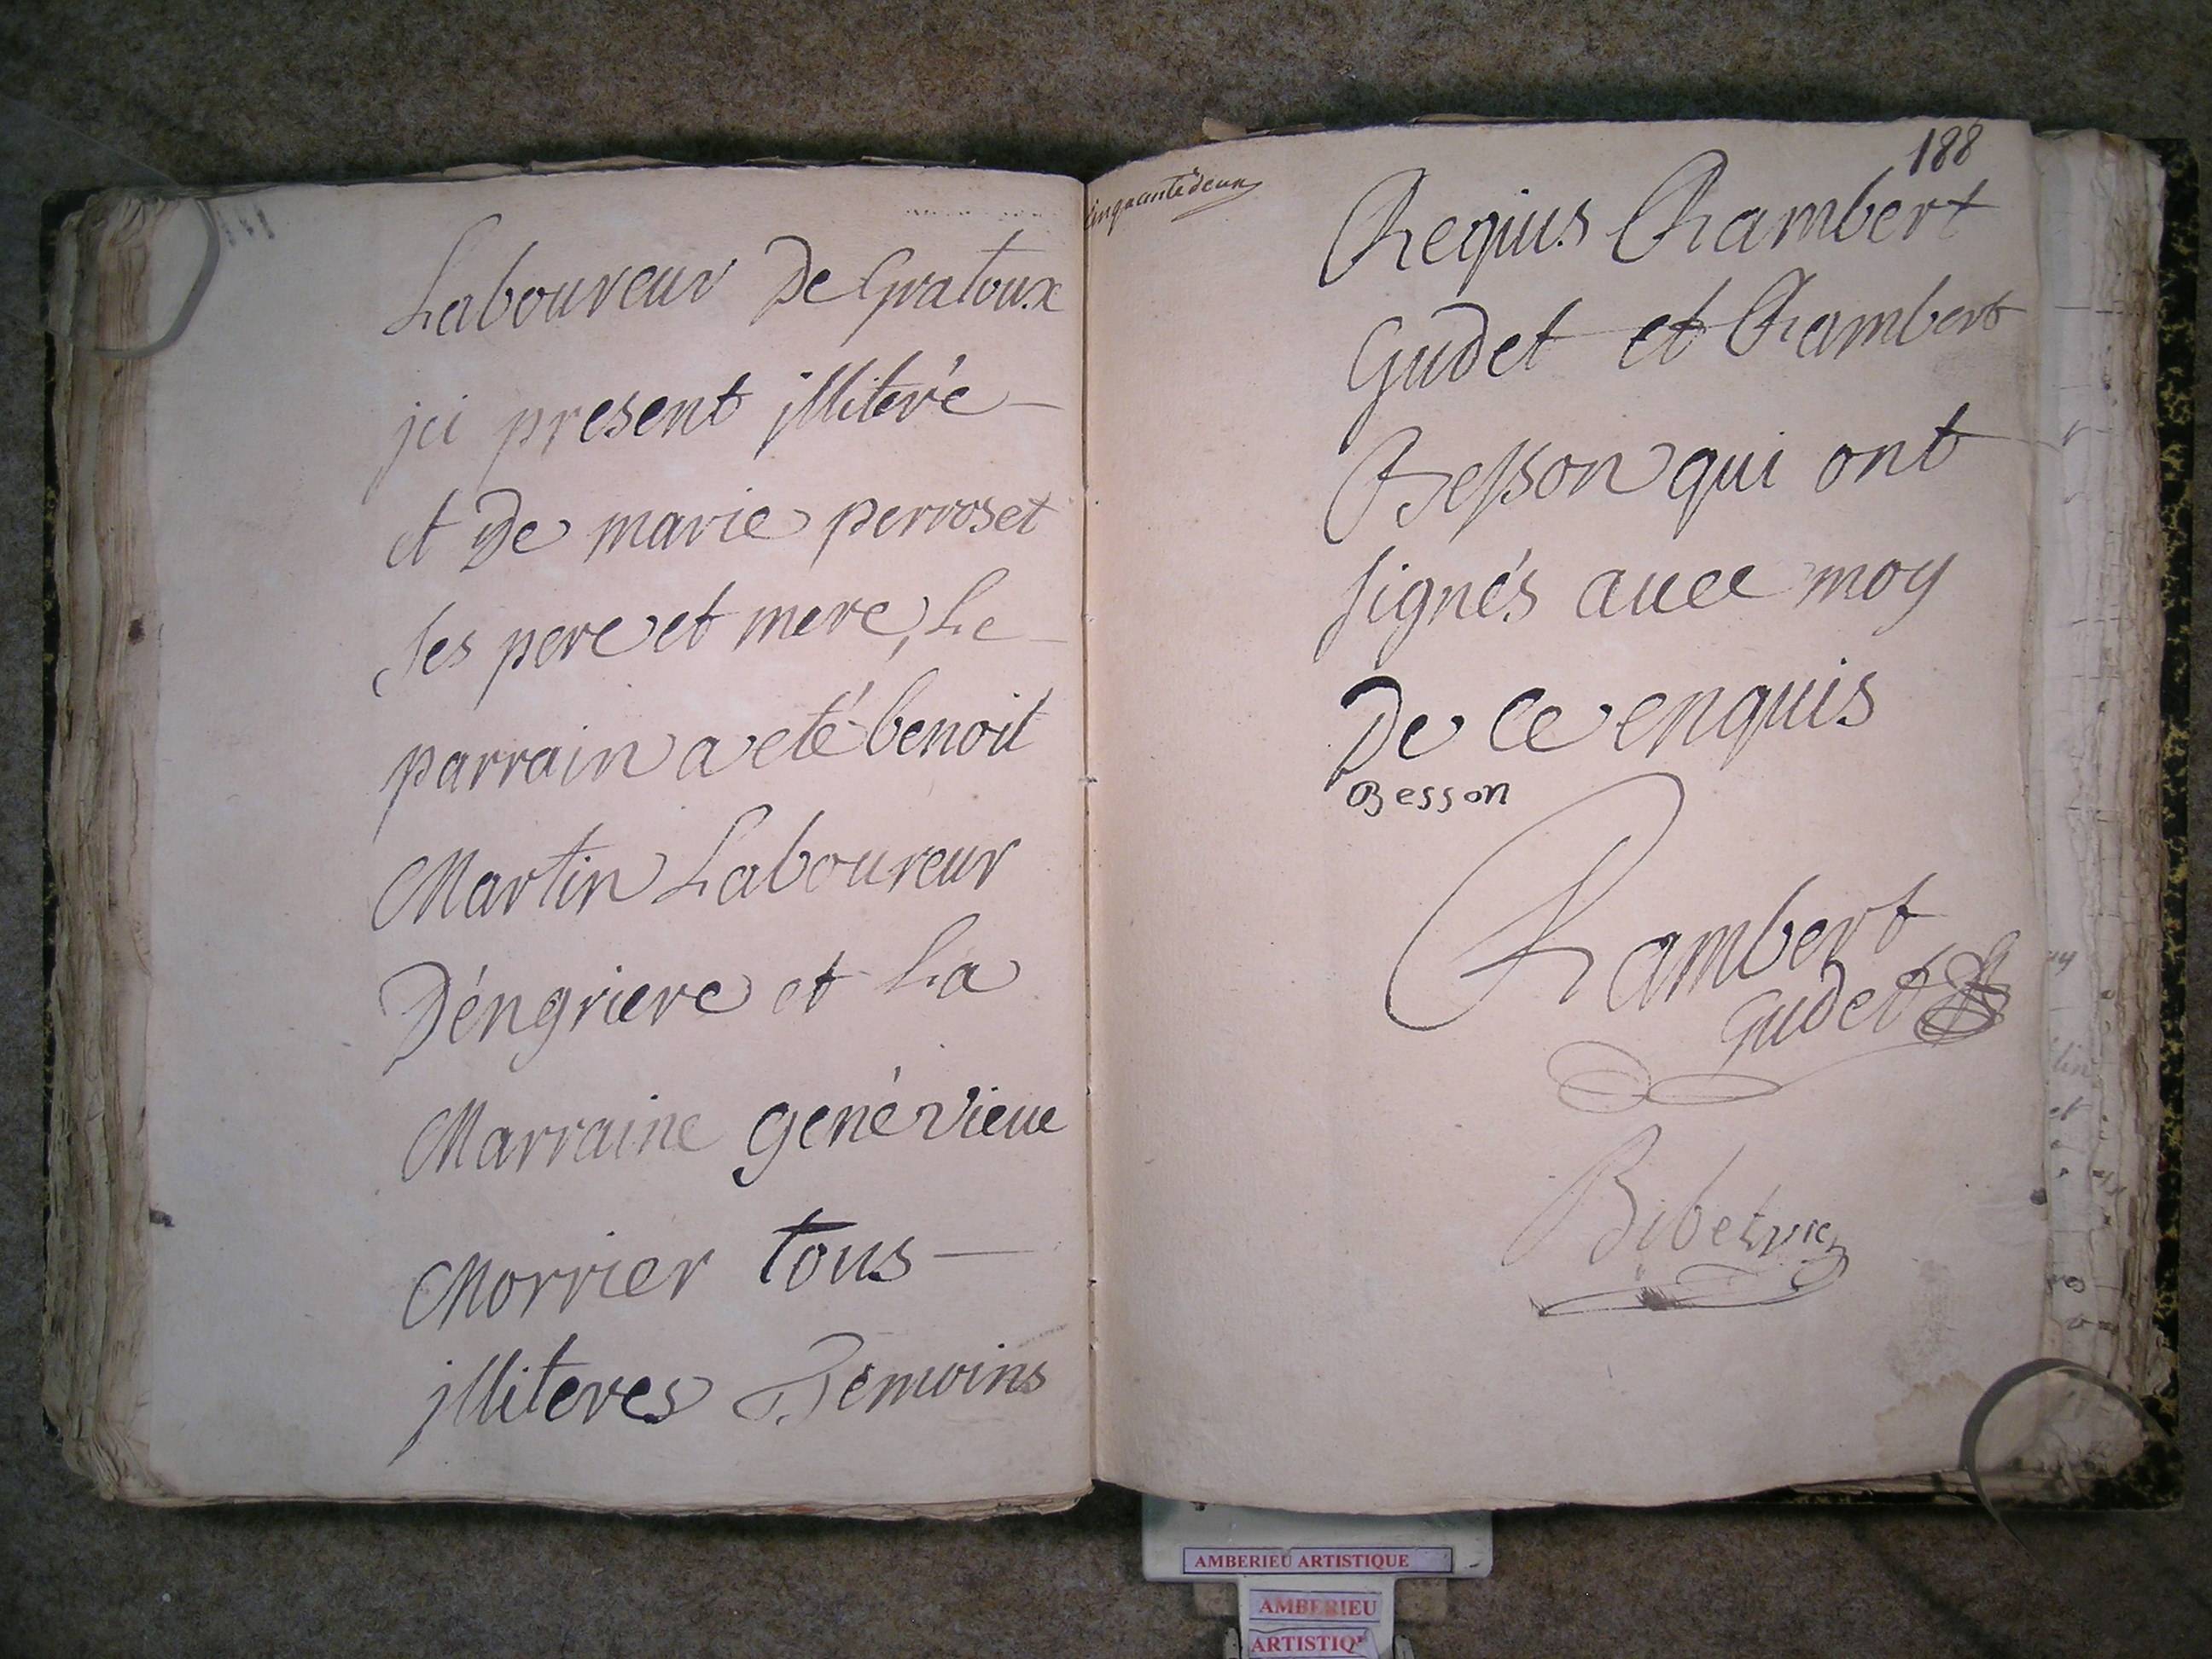 Laboureur De Gratoux
jci present jlliteré
et De marie perroset
ses pere et mere, Le
parrain a eté benoit
Martin Laboureur
D'éngriere et La
Marraine genévieue
Morrier tous
jlliteres Temoins
cinquante deux
188
Requis Chambert
Gudet et Chambert
Besson qui ont
signés auec moy
De ce enquis
Besson
Chambert
Gudet
Bibet vic
AMBERIEU ARTISTIQUE
AMBERIEU
ARTISTIQ